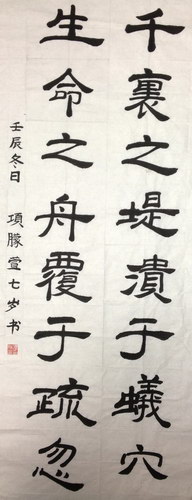 千裏之堤潰于蟻穴
生命之舟覆于疏忽
壬辰冬日 項朦萱七岁书